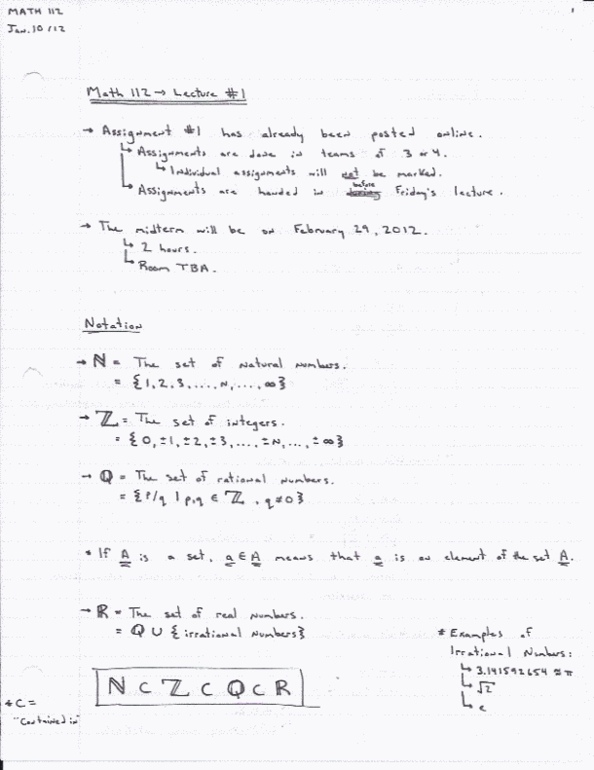 MATH 112
Jan. 10/12
1
Math 112 → Lecture #1
→ Assignment #1 has already been posted online.
↳ Assignments are done in teams of 3 or 4.
↳ Individual assignments will not be marked.
↳ Assignments are handed in before Friday's lecture.
→ The midterm will be on February 29, 2012.
↳ 2 hours.
↳ Room TBA.
Notation
→ ℕ = The set of natural numbers.
= {1, 2, 3, ...., N, ..., ∞}
→ ℤ = The set of integers.
= {0, ±1, ±2, ±3, ..., ±N, ..., ±∞}
→ ℚ = The set of rational numbers.
= {p/q | p,q ∈ ℤ, q ≠ 0}
* If A is a set, a ∈ A means that a is an element of the set A.
→ ℝ = The set of real numbers.
= ℚ ∪ {irrational numbers}
ℕ ⊂ ℤ ⊂ ℚ ⊂ ℝ
* ⊂ =
"Contained in"
* Examples of
Irrational Numbers:
↳ 3.141592654 ≈ π
↳ √2
↳ e